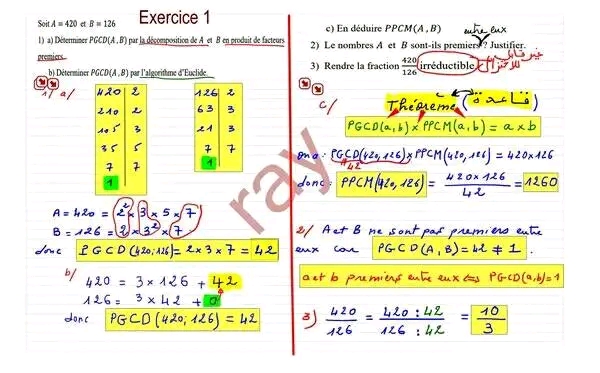 Exercice 1
Soit A = 420 et B = 126
1) a) Déterminer PGCD(A, B) par la décomposition de A et B en produit de facteurs
premiers.
b) Déterminer PGCD(A, B) par l'algorithme d'Euclide.
1/ a/
420 | 2
210 | 2
105 | 3
35 | 5
7 | 7
1
126 | 2
63 | 3
21 | 3
7 | 7
1
A = 420 = 2² x 3 x 5 x 7
B = 126 = 2 x 3² x 7
donc PGCD(420;126) = 2 x 3 x 7 = 42
b/
420 = 3 x 126 + 42
126 = 3 x 42 + 0
donc PGCD(420; 126) = 42
c) En déduire PPCM(A, B)
entre eux
2) Le nombres A et B sont-ils premiers ? Justifier.
3) Rendre la fraction 420/126 irréductible
غير قابل
للاختزال
c/
Théorème (قاعدة)
PGCD(a,b) x PPCM(a,b) = a x b
on a : PGCD(420,126) x PPCM(420,126) = 420 x 126
42
donc : PPCM(420,126) = 420 x 126 / 42 = 1260
2/ A et B ne sont pas premiers entre
eux car PGCD(A,B) = 42 ≠ 1.
a et b premiers entre eux ⇔ PGCD(a,b)=1
3) 420/126 = 420 : 42 / 126 : 42 = 10/3
ray